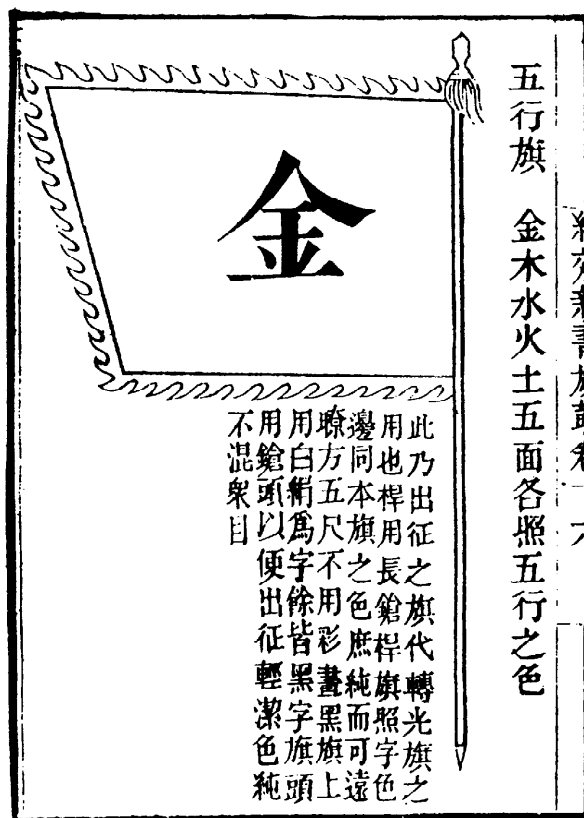 五行旗 金木水火土五面各照五行之色
金
此乃出征之旗代轉光旗之
用也桿用長鎗桿旗照字色
邊同本旗之色庶純而可遠
瞭方五尺不用彩畫黑旗上
用白絹為字餘皆黑字旗頭
用鎗頭以便出征輕潔色純
不混衆目